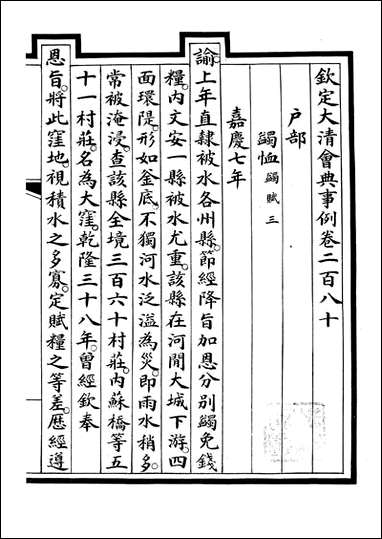 欽定大清會典事例卷二百八十
戶部
蠲恤蠲賦三
嘉慶七年
諭上年直隸被水各州縣。節經降旨加恩分別蠲免錢
糧。內文安一縣被水尤重。該縣在河間大城下游。四
面環隄。形如釜底。不獨河水泛溢為災。即雨水稍多。
常被淹浸。查該縣全境三百六十村莊。內蘇橋等五
十一村莊。名為大窪。乾隆三十八年。曾經欽奉
恩旨。將此窪地。視積水之多寡。定賦糧之等差。歷經遵